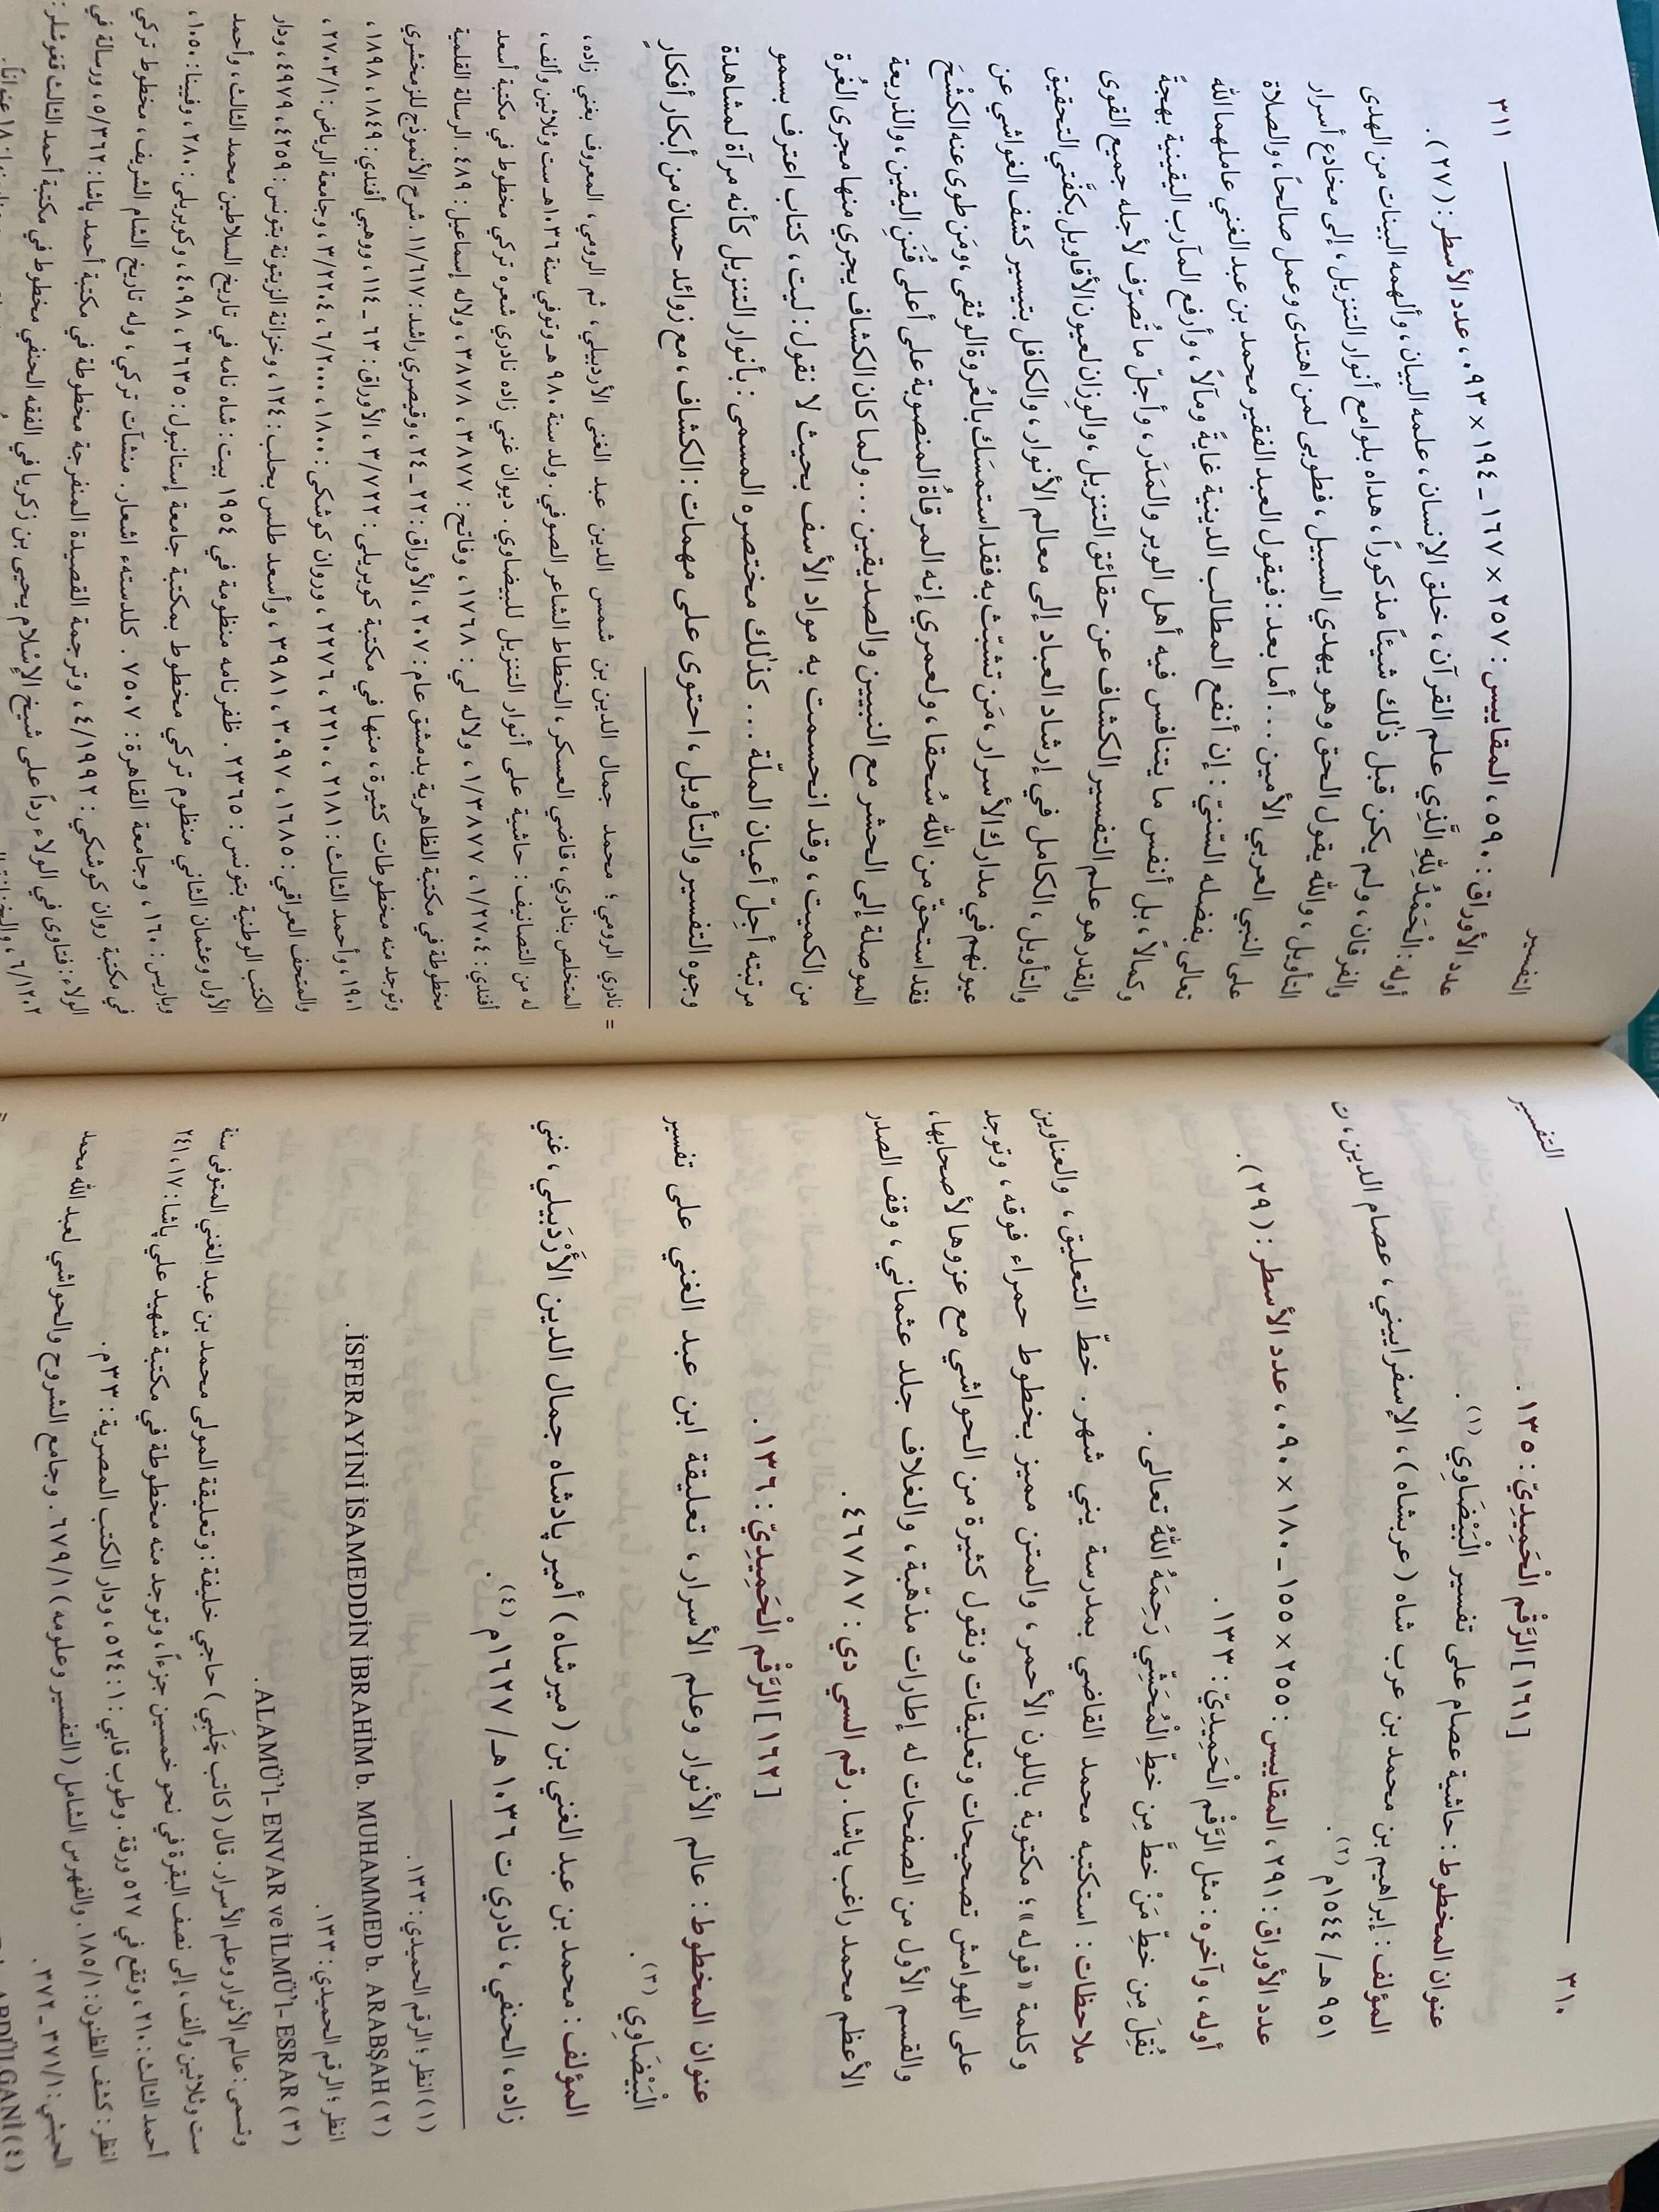 ٣١٠ التفسير
[١٦١] الرَّقْم الْحَمِيدِيّ: ١٣٥.
عنوان المخطوط: حاشية عصام على تفسير الْبَيْضَاوِي (١).
المؤلف: إبراهيم بن محمد بن عرب شاه (عربشاه)، الإسفراييني، عصام الدين، ت
٩٥١هـ/ ١٥٤٤م (٢).
عدد الأوراق: ٢٩١، المقاييس: ٢٥٥ × ١٥٥ ــ ١٨٠ × ٠٩٠، عدد الأسطر: (٢٩).
أوله، وآخره: مثل الرَّقْم الْحَمِيدِيّ: ١٣٣.
نُقِلَ مِن خطِّ مَنْ خطَّ مِن خطِّ الْمُحَشِّي رَحِمَهُ اللهُ تعالى.
ملاحظات: استكتبه محمد القاضي بمدرسة يني شهر. خطّ التعليق، والعناوين
وكلمة «قوله»؛ مكتوبة باللون الأحمر، والمتن مميز بخطوط حمراء فوقه، وتوجد
على الهوامش تصحيحات وتعليقات ونقول كثيرة من الحواشي مع عزوها لأصحابها،
والقسم الأول من الصفحات له إطارات مذهّبة، والغلاف جلد عثماني، وقف الصدر
الأعظم محمد راغب پاشا. رقم السي دي: ٤٦٧٨٧.
[١٦٢] الرَّقْم الْحَمِيدِيّ: ١٣٦.
عنوان المخطوط: عالم الأنوار وعلم الأسرار، تعليقة ابن عبد الغني على تفسير
الْبَيْضَاوِي (٣).
المؤلف: محمد بن عبد الغني بن (ميرشاه) أمير پادشاه جمال الدين الأَرْدَبيلي، غني
زاده، الحنفي، نادري ت ١٠٣٦هـ/ ١٦٢٧م (٤).
(١) انظر؛ الرقم الحميدي: ١٣٣.
(٢) İSFERAYİNİ İSAMEDDİN İBRAHİM b. MUHAMMED b. ARABŞAH.
انظر؛ الرقم الحميدي: ١٣٣.
(٣) ALAMÜ'l- ENVAR ve İLMÜ'l- ESRAR.
وتسمى: عالم الأنوار وعلم الأسرار. قال (كاتب چَلَبِي) حاجي خليفة: وتعليقة المولى محمد بن عبد الغني المتوفى سنة
ست وثلاثين وألف، إلى نصف البقرة في نحو خمسين جزءاً، وتوجد منه مخطوطة في مكتبة شهيد علي پاشا: ١٧، ٢٤١
أحمد الثالث: ٢١٠، وتقع في ٥٢٧ ورقة. وطوب قابي: ١: ٥٢٤، ودار الكتب المصرية: ٣٣م.
انظر: كشف الظنون: ١/ ١٨٥. والفهرس الشامل (التفسير وعلومه) ١/ ٦٧٩. وجامع الشروح والحواشي لعبد الله محمد
الحبشي: ١/ ٣٧١ ــ ٣٧٢.
التفسير ٣١١
عدد الأوراق: ٥٩٠، المقاييس: ٢٥٧ × ١٦٧ ــ ١٩٤ × ٠٩٣، عدد الأسطر: (٢٧).
أوله: الْحَمْدُ لِلّهِ الَّذِي علم القرآن، خلق الإنسان، علمه البيان، وألهمه البينات من الهدى
والفرقان، ولم يكن قبل ذلك شيئاً مذكوراً، هداه بلوامع أنوار التنزيل، إلى مخادع أسرار
التأويل، والله يقول الحق وهو يهدي السبيل، فطوبى لمن اهتدى وعمل صالحاً، والصلاة
على النبي العربي الأمين... أما بعد: فيقول العبد الفقير محمد بن عبد الغني عاملهما الله
تعالى بفضله السّنيّ: إن أنفع المطالب الدينية غايةً ومآلاً، وأرفع المآرب اليقينية بهجةً
وكمالاً، بل أنفس ما يتنافس فيه أهل الوبر والمَدَر، وأجلّ ما تُصرّف لأجله جميع القوى
والقدر هو علم التفسير الكشاف عن حقائق التنزيل، والوِزان لعيون الأقاويل بكَفّتي التحقيق
والتأويل، الكامل في إرشاد العباد إلى معالم الأنوار، والكافل بتيسير كشف الغواشي عن
عيونهم في مدارك الأسرار، مَن تشبّث به فقد استمسَك بالعُروة الوثقى، ومَن طوى عنه الكَشْحَ
فقد استحقّ من الله سُحقا، ولعمري إنه المرقاةُ المنصوبة على أعلى قُنَنِ اليقين، والذريعة
الموصلة إلى الحشر مع النبيين والصديقين... ولما كان الكشاف يجري منها مجرى الغُرة
من الكميت، وقد انحسمت به مواد الأسف بحيث لا نقول: ليت، كتاب اعترف بسمو
مرتبته أجِلّ أعيان الملّة... كذلك مختصره المسمى: بأنوار التنزيل كأنه مرآة لمشاهدة
وجوه التفسير والتأويل، احتوى على مهمات: الكشاف، مع زوائد حسان من أبكار أفكار
= نادري الرومي؛ محمد جمال الدين بن شمس الدين عبد الغني الأردبيلي، ثم الرومي، المعروف بغني زاده،
المتخلص بنادري، قاضي العسكر، الخطاط الشاعر الصوفي. ولد سنة ٩٨٠ هـ وتوفي سنة ١٠٣٦هـ ست وثلاثين وألف،
له من التصانيف: حاشية على أنوار التنزيل للبيضاوي. ديوان غني زاده نادري شعره تركي مخطوط في مكتبة أسعد
أفندي: ١/٢٧٠٤، ١/٣٨٧٧، ولاله لي: ١٧٦٨، وفاتح: ٣٨٧٧، ٣٨٧٨، ولاله إسماعيل: ٤٨٩. الرسالة القلمية
مخطوطة في مكتبة الظاهرية بدمشق عام: ٢٠٧، الأوراق: ٢٢ ــ ٢٤، وقيصري راشد: ١١/٦١٧. شرح الأنموذج للزمخشري
وتوجد منه مخطوطات كثيرة، منها في مكتبة كوبريلي: ٣/٧٢٢، الأوراق: ٦٣ ــ ١١٤، ووهبي أفندي: ١٨٤٩، ١٨٩٨،
١٩٠١، وأحمد الثالث: ٢١٨١، ٢٢١٠، ٢٢٧٦، وروان كوشكي: ١٨٠٠، ٦/٢٠٠٠، ٣/٢٢٠٤، وجامعة الرياض: ٢٧٠٣/١،
والمتحف العراقي: ١٦٨٥، ٣٠٩٧، ٣٩٨١، وأسعد طلس بحلب: ١٢٤، وخزانة الزيتونة بتونس: ٤٢٥٩، ٤٩٧٩، ودار
الكتب الوطنية بتونس: ٢٣٦٥. ظفر نامه منظومة في ١٩٥٤ بيت: شاه نامه في تاريخ السلاطين محمد الثالث، وأحمد
الأول وعثمان الثاني منظوم تركي مخطوط بمكتبة جامعة إستانبول: ٣٦٣٥، ٤٠٩٨، وكوبريلي: ٢٨٠، وفيينا: ١٠٥٠،
وباريس: ١٦٠، وجامعة القاهرة: ٧٥٠٧. كلدستهء اشعار. منشآت تركي، وله تاريخ الشام الشريف، مخطوط تركي
في مكتبة روان كوشكي: ٤/١٩٩٢، وترجمة القصيدة المنفرجة مخطوطة في مكتبة أحمد پاشا: ٥/٣٦٢، ورسالة في
الولاء: فتاوى في الولاء رداً على شيخ الإسلام يحيى بن زكريا في الفقه الحنفي مخطوط في مكتبة أحمد الثالث